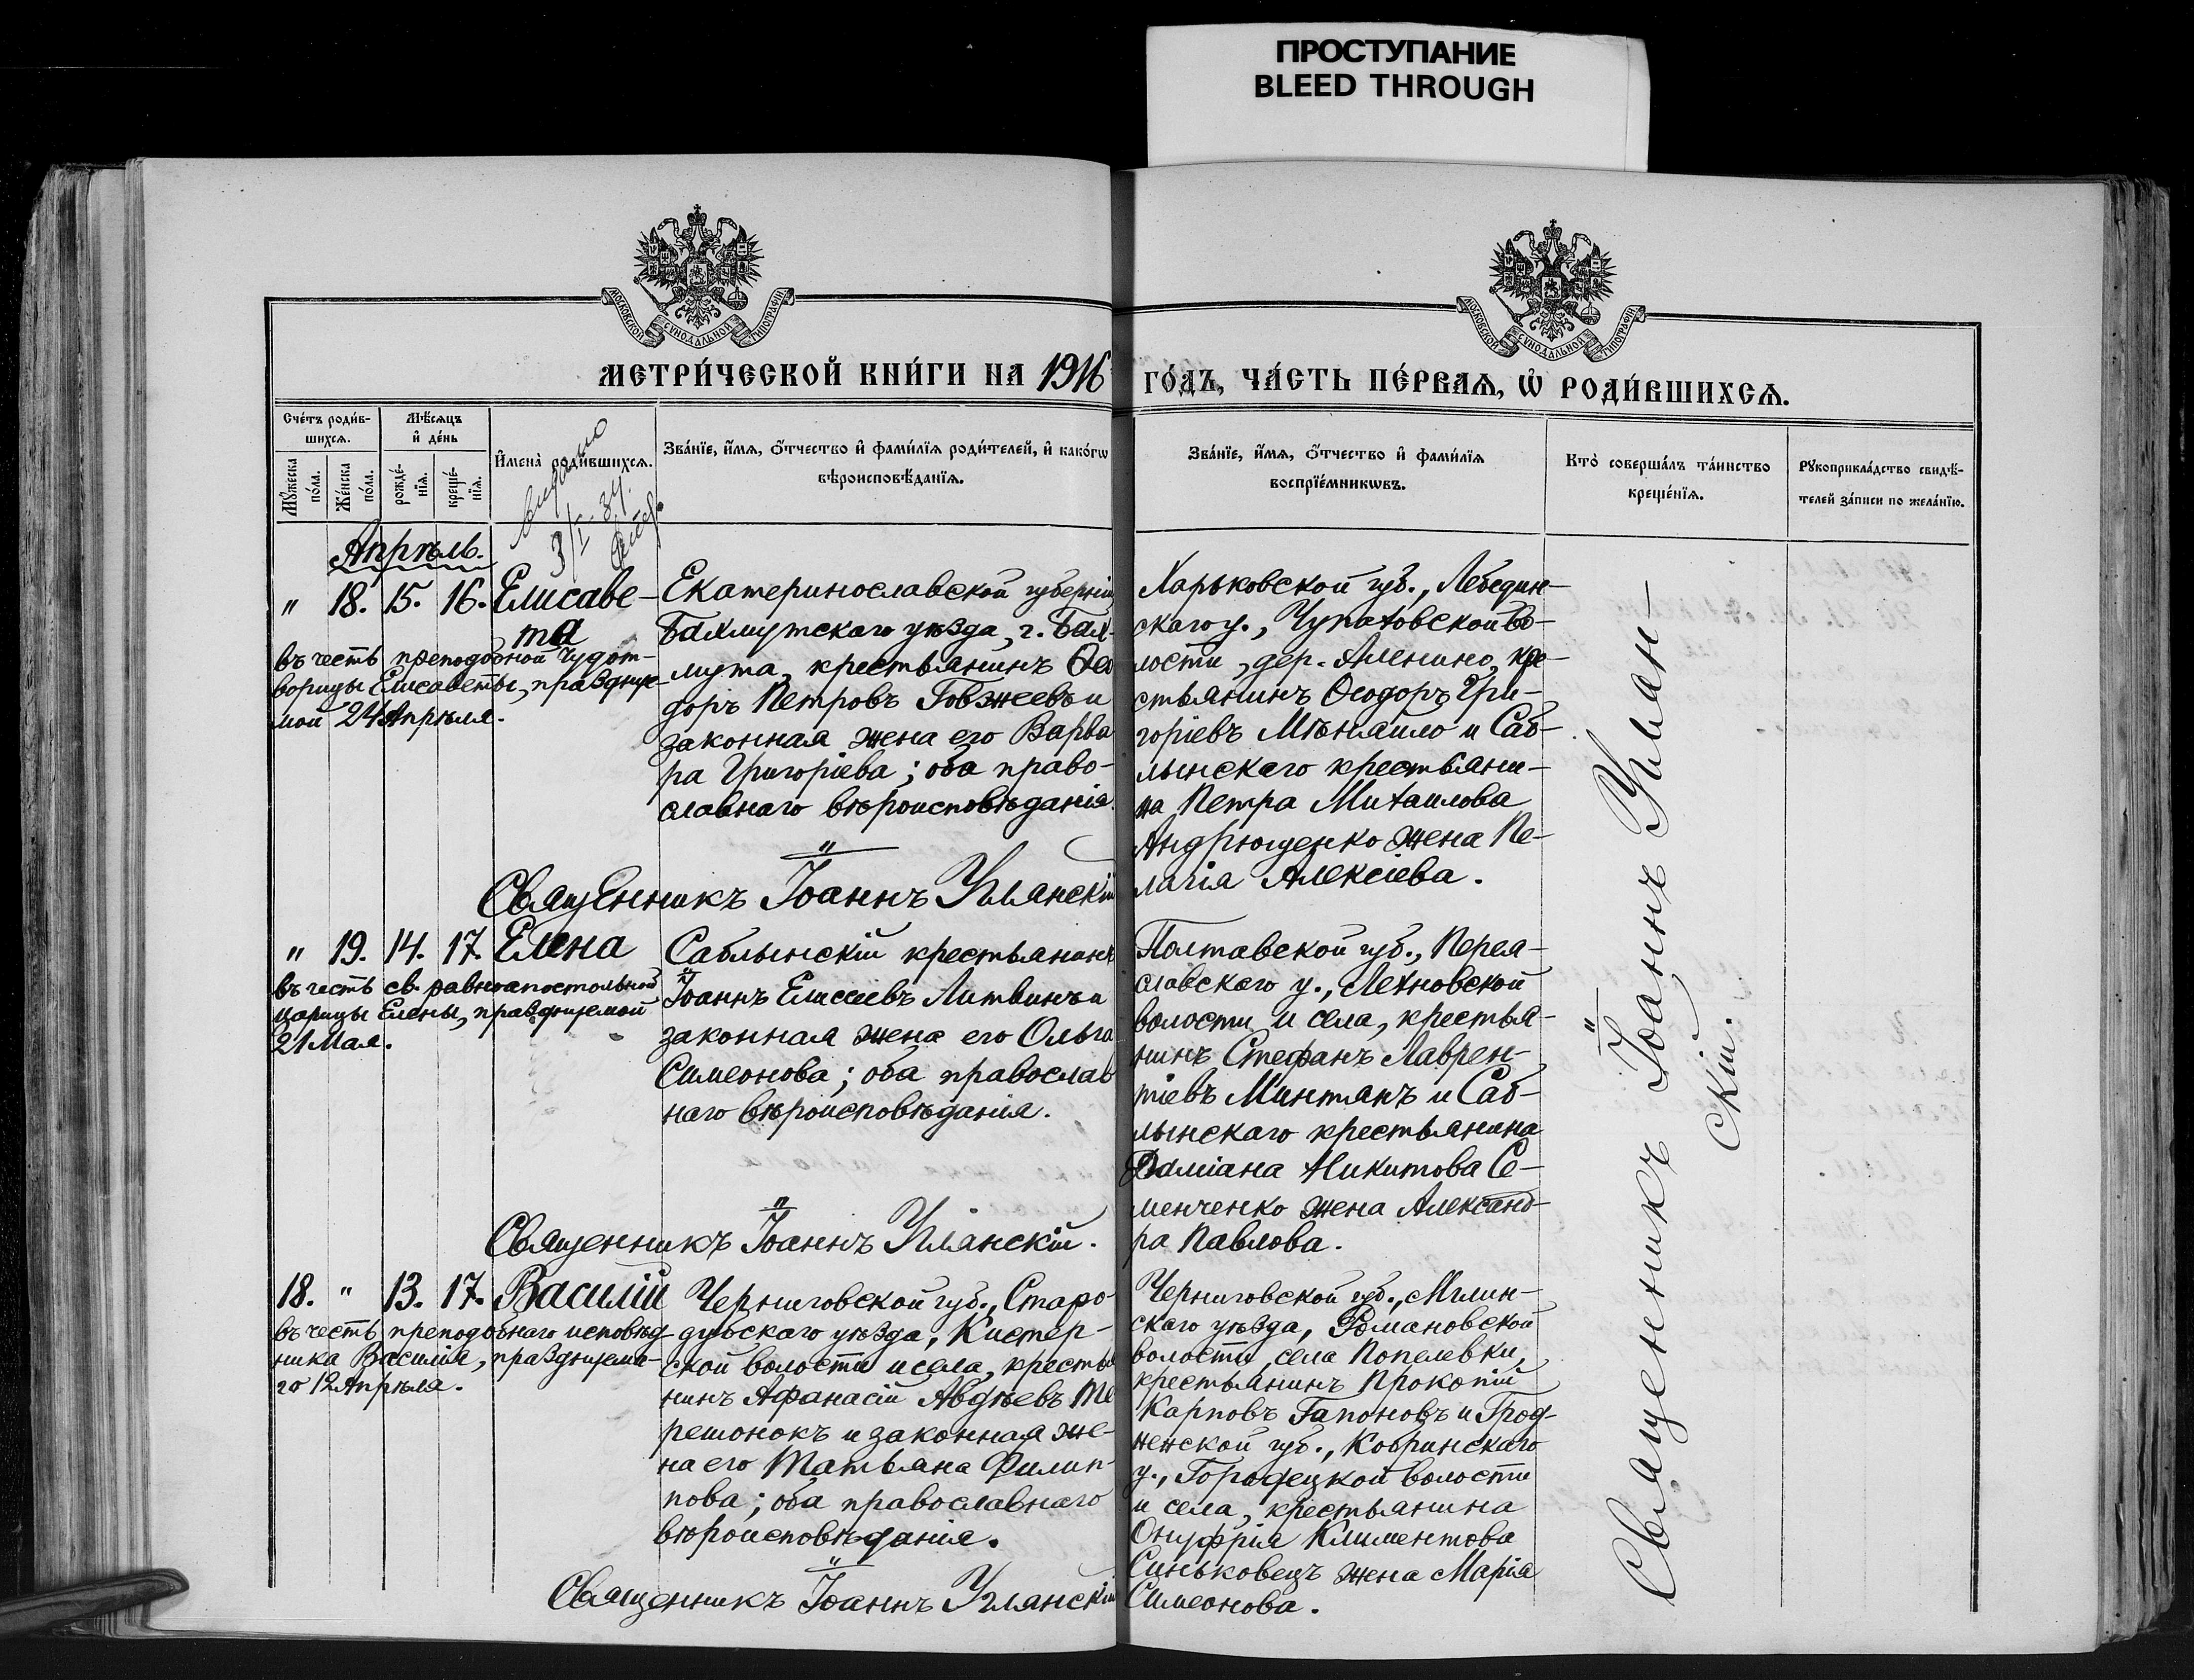 ПРОСТУПАНИЕ
BLEED THROUGH
МОСКОВСКОЙ СѴНОДАЛЬНОЙ ТИПОГРАФІИ
МОСКОВСКОЙ СѴНОДАЛЬНОЙ ТИПОГРАФІИ
МЕТРИ́ЧЕСКОЙ КНИ́ГИ НА 1916
ГО́ДЪ, ЧА́СТЬ ПЕ́РВАѦ, Ѡ҆ РОДИ́ВШИХСѦ.
Сче́тъ роди́в-
шихсѧ.
Мѣ́сѧцъ
и҆ де́нь
Мꙋ́жеска
по́ла.
Же́нска
по́ла.
рожде́-
нїѧ.
креще́-
нїѧ.
И҆мена̀ роди́вшихсѧ.
Зва́нїе, и҆́мѧ, ѻ҆́тчество и҆ фами́лїѧ роди́телей, и҆ како́гѡ
вѣроисповѣ́данїѧ.
Зва́нїе, и҆́мѧ, ѻ҆́тчество и҆ фами́лїѧ
воспрїе́мникѡвъ.
Кто̀ соверша́лъ та́инство
креще́нїѧ.
Рꙋкоприкла́дство свидѣ́-
телей за́писи по жела́нїю.
Апрѣль.
" 18. 15. 16. Елисаве-
та
въ честь преподобной Чудот-
ворицы Елисаветы, празднуе-
мой 24 Апрѣля.
Екатеринославской губерніи
Бахмутскаго уѣзда, г. Бах-
мута, крестьянинъ Ѳео
доръ Петровъ Говжеевъ и
законная жена его Варва
ра Григоріева; оба право-
славнаго вѣроисповѣданія.
Священникъ Іоаннъ Улянскій
Харьковской губ., Лебедин-
скаго у., Чупаховской во-
лости, дер. Аленино, кре-
стьянинъ Ѳеодоръ Гри-
горіевъ Мѣняйло и Саб-
лынскаго крестьяни-
на Петра Михаилова
Андрющенко жена Пе-
лагія Алексіева.
" 19. 14. 17. Елена
въ честь св. равноапостольной
царицы Елены, празднуемой
21 Мая.
Саблынскій крестьянинъ
Іоаннъ Елисеевъ Литвинъ и
законная жена его Ольга
Симеонова; оба православ
наго вѣроисповѣданія.
Священникъ Іоаннъ Улянскій.
Полтавской губ., Перея-
славского у., Лехновской
волости и села, крестья-
нинъ Стефанъ Лаврен-
тіевъ Минтянъ и Саб-
лынскаго крестьянина
Даміана Никитова Се-
менченко жена Александ-
ра Павлова.
18. " 13. 17. Василій
въ честь преподобнаго исповѣд-
ника Василія, празднуема-
го 12 Апрѣля.
Черниговской губ., Старо-
дубскаго уѣзда, Кистер-
ской волости и села, крестья
нинъ Афанасій Авдѣевъ Те
решонокъ и законная же-
на его Татьяна Филип-
пова; оба православнаго
вѣроисповѣданія.
Священникъ Іоаннъ Улянскій
Черниговской губ., Мглин-
скаго уѣзда, Романовской
волости, села Попелевки,
крестьянинъ Прокопій
Карповъ Гапоновъ и Грод-
ненской губ., Кобринскаго
у., Городецкой волости
и села, крестьянина
Онуфрія Климентова
Синьковецъ жена Марія
Симеонова.
Священникъ Іоаннъ Улян-
скій.